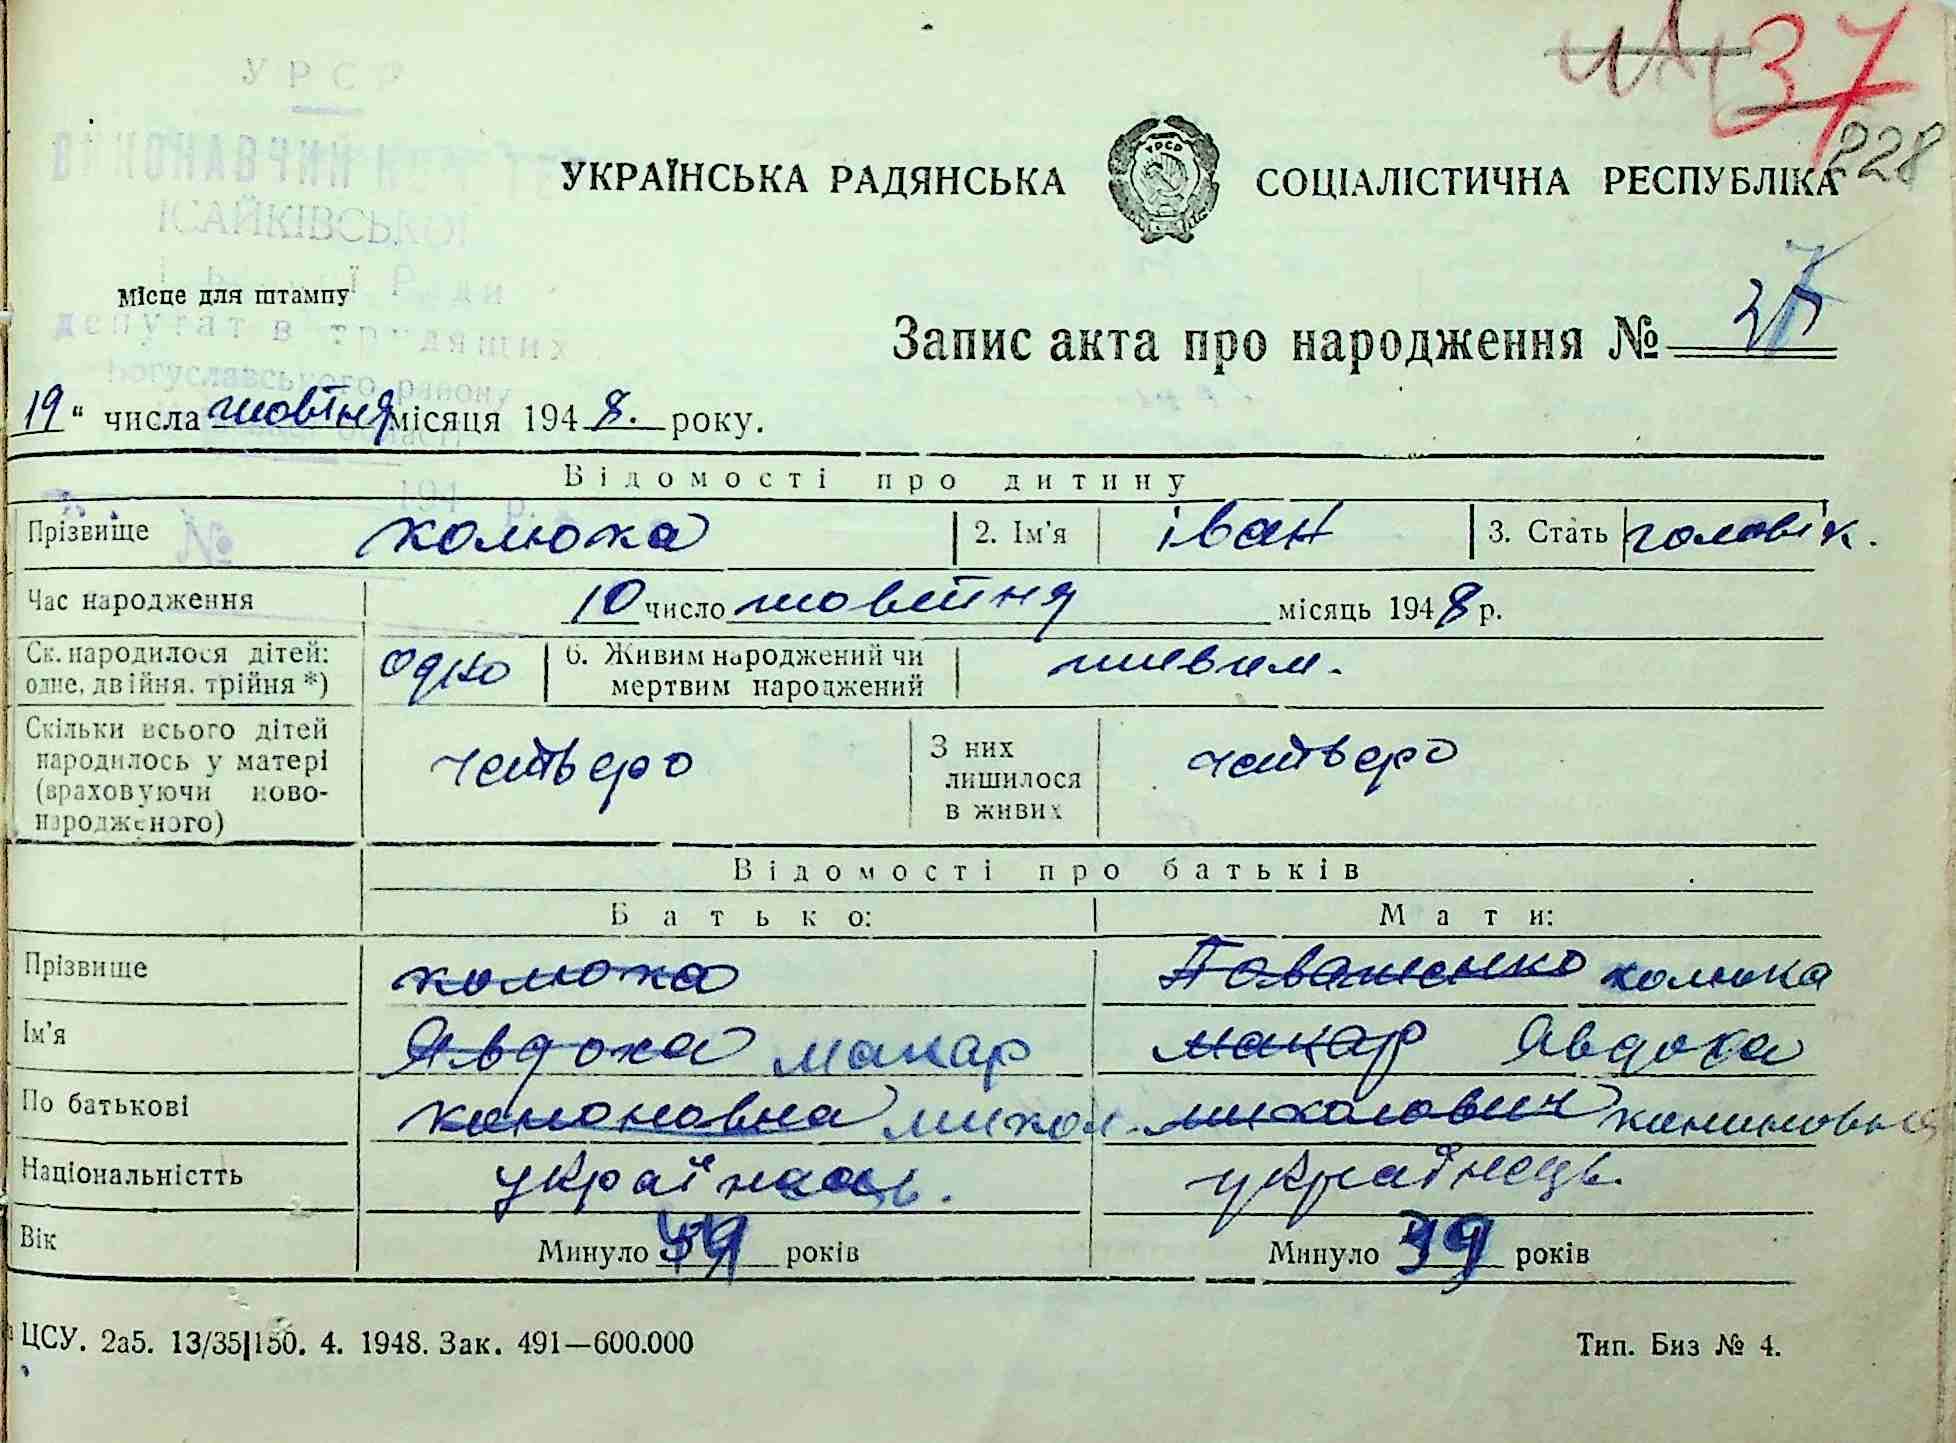 37
228
УРСР
ВИКОНАВЧИЙ
ІСАЙКІВСЬКОЇ
УКРАЇНСЬКА РАДЯНСЬКА СОЦІАЛІСТИЧНА РЕСПУБЛІКА
УРСР
Місце для штампу
депутатів трудящих
Богуславського району
Запис акта про народження №
19 " числа жовтня місяця 1948. року.
Відомості про дитину
194 р.
Прізвище Колюка 2. Ім'я Іван 3. Стать чоловік.
№
Час народження 10 число жовтня місяць 1948 р.
Ск. народилося дітей: одне, двійня, трійня *) одно 6. Живим народжений чи мертвим народжений живим.
Скільки всього дітей народилось у матері (враховуючи новонародженого) четверо З них лишилося в живих четверо
Відомості про батьків
Батько: Мати:
Прізвище Колюка Поваженко Колюка
Ім'я Явдоха Макар Макар Явдоха
По батькові Кононовна Микол. Миколович
Національністть українець. українець.
Вік Минуло 39 років Минуло 39 років
ЦСУ. 2а5. 13/35|150. 4. 1948. Зак. 491—600.000 Тип. Биз № 4.